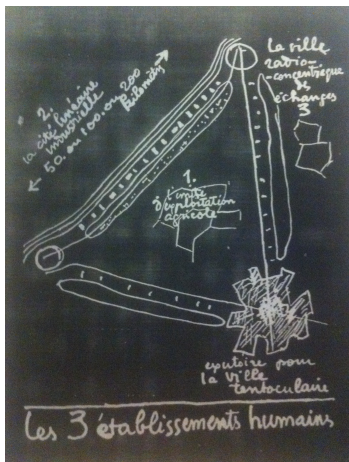 2.
la cité linéaire
industrielle
50. ou 100. ou 200
kilomètr
la ville
radio-
concentrique
des
échanges
3
1.
l'unité
d'exploitation
agricole
exutoire pour
la ville
tentaculaire
Les 3 établissements humains